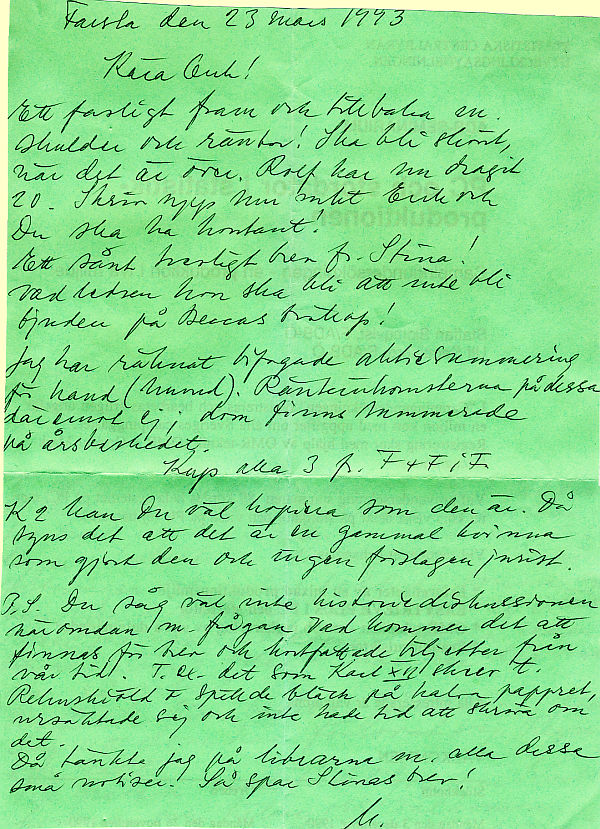 Farsta den 23 mars 1993
Kära Erik!
Ett farligt fram och tillbaka m.
skulder och räntor! Ska bli skönt,
när det är över. Rolf har nu dragit
20. Skriv nya nu mkt Erik och
Du ska ha kontant!
Ett sånt herligt brev fr. Stina!
Vad ledsen hon ska bli att inte bli
bjuden på Beccas bröllop!
Jag har räknat bifogade aktiesummering
för hand (huvud). Ränteinkomsterna på dessa
däremot ej, dom finns summerade
på årsbeskedet.
Kups alla 3 fr. F & F i F.
K2 kan Du väl kopiera som den är. Då
syns det att det är en gammal kvinna
som gjort den och ingen förslagen jurist.
P.S. Du såg väl inte historiediskussionen
häromdan m. frågan Vad kommer det att
finnas för brev och kortfattade biljetter från
vår tid. T.ex. det som Karl XII skrev t.
Rehnskiöld & spillde bläck på halva pappret,
ursäktade sej och inte hade tid att skriva om
det.
Då tänkte jag på librarna m. alla dessa
små notiser. Så spar Stinas brev!
M.